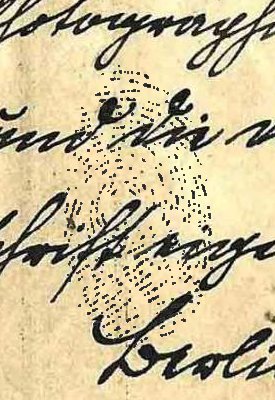 Photograph
und die
schrift eige
Berli